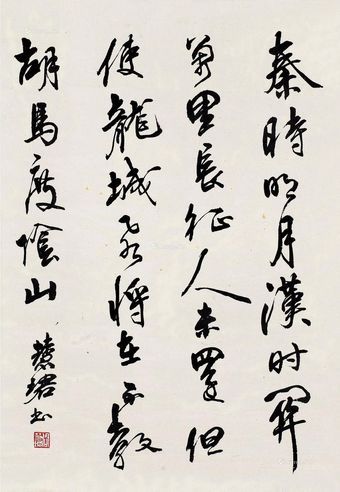 秦時明月漢时関
萬里長征人未還但
使龍城飛將在不教
胡馬度陰山
書